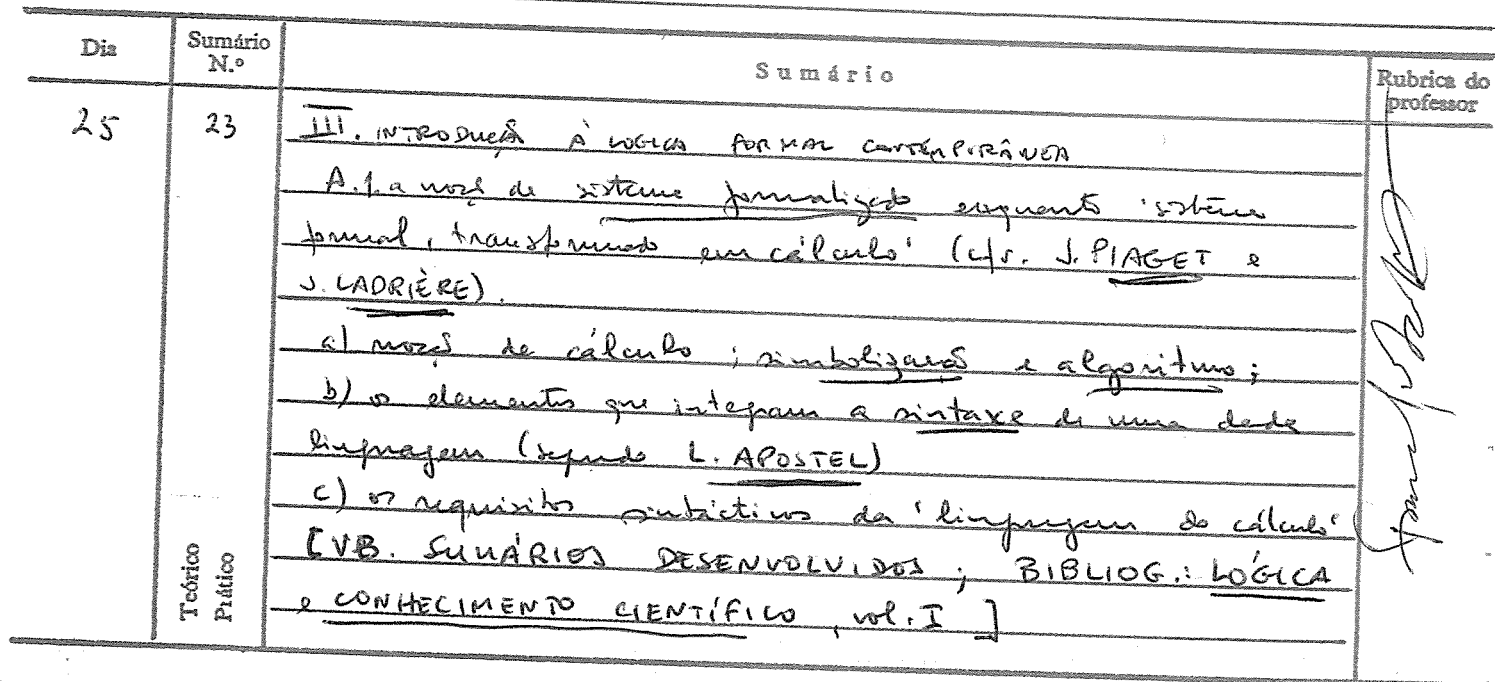 Dia
Sumário N.º
Sumário
Rubrica do professor
25
23
III. INTRODUÇÃO À LÓGICA FORMAL CONTEMPORÂNEA
A.1. a noção de sistema formalizado enquanto 'sistema
formal, transformado em cálculo' (cfr. J. PIAGET e
J. LADRIÈRE).
a) noção de cálculo; simbolização e algoritmo;
b) os elementos que integram a sintaxe de uma dada
linguagem (segundo L. APOSTEL)
c) os requisitos sintácticos da 'linguagem do cálculo'
[VB. SUMÁRIOS DESENVOLVIDOS; BIBLIOG.: LÓGICA
e CONHECIMENTO CIENTÍFICO, vol. I]
Teórico
Prático